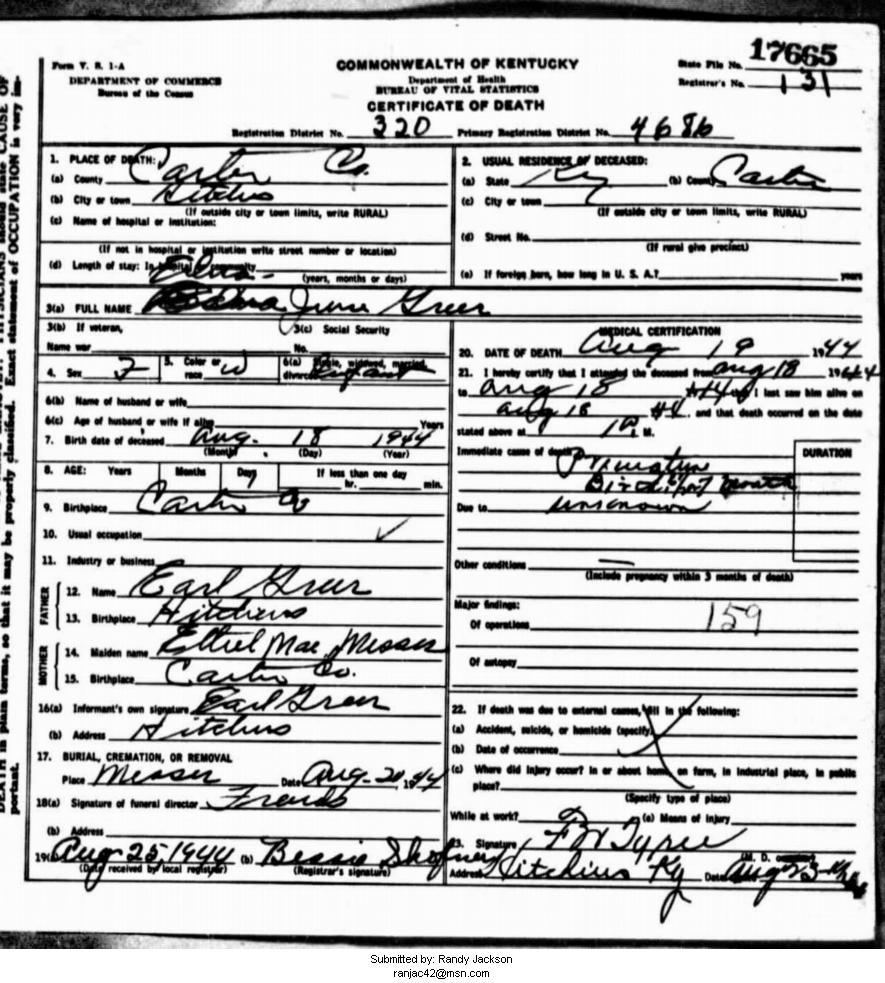 17665
Form V. S. 1-A
COMMONWEALTH OF KENTUCKY
State File No.
DEPARTMENT OF COMMERCE
Department of Health
Registrar's No. 131
Bureau of the Census
BUREAU OF VITAL STATISTICS
CERTIFICATE OF DEATH
Registration District No. 320 Primary Registration District No. 4686
1. PLACE OF DEATH:
(a) County Carter Co.
(b) City or town Hitchins
(If outside city or town limits, write RURAL)
(c) Name of hospital or institution:
(If not in hospital or institution write street number or location)
(d) Length of stay: In
(years, months or days)
2. USUAL RESIDENCE OF DECEASED:
(a) State Ky (b) County Carter
(c) City or town
(If outside city or town limits, write RURAL)
(d) Street No.
(If rural give precinct)
(e) If foreign born, how long in U. S. A.? years
3(a) FULL NAME June Greer
3(b) If veteran, 3(c) Social Security
Name war No.
4. Sex F 5. Color or race W 6(a) Single, widowed, married, divorced Infant
6(b) Name of husband or wife
6(c) Age of husband or wife if alive Years
7. Birth date of deceased Aug. 18 1944
(Month) (Day) (Year)
8. AGE: Years Months Days If less than one day
hr. min.
9. Birthplace Carter Co
10. Usual occupation
11. Industry or business
FATHER
12. Name Earl Greer
13. Birthplace Hitchins
MOTHER
14. Maiden name Ethel Mae Messer
15. Birthplace Carter Co.
16(a) Informant's own signature Earl Greer
(b) Address Hitchins
17. BURIAL, CREMATION, OR REMOVAL
Place Messer Date Aug-20, 1944
18(a) Signature of funeral director Friends
(b) Address
19(a) Aug 25, 1944 (b) Bessie
(Date received by local registrar) (Registrar's signature)
MEDICAL CERTIFICATION
20. DATE OF DEATH Aug 19 1944
21. I hereby certify that I attended the deceased from Aug 18 1944
to Aug 18 I last saw him alive on
Aug 18 44, and that death occurred on the date
stated above at M.
Immediate cause of death Premature
DURATION
Birth month
Due to unknown
Other conditions
(Include pregnancy within 3 months of death)
Major findings:
Of operations 159
Of autopsy
22. If death was due to external causes, fill in the following:
(a) Accident, suicide, or homicide (specify)
(b) Date of occurrence
(c) Where did injury occur? In or about home, on farm, in industrial place, in public
place?
(Specify type of place)
While at work? (e) Means of injury
23. Signature
Address Hitchins Ky Date Aug 23
DEATH in plain terms, so that it may be properly classified. Exact statement of OCCUPATION is very im-
portant.
Submitted by: Randy Jackson
ranjac42@msn.com